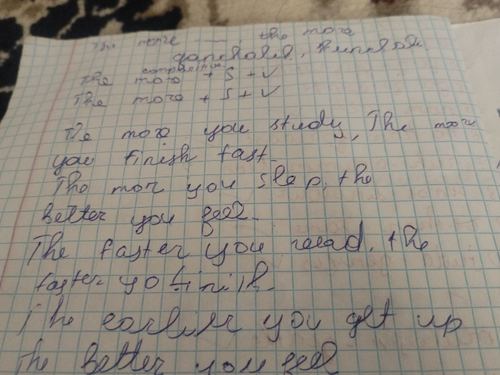 The more — , the more
comparative
The more + S + V
The more + S + V
The more you study, The more
you finish fast.
The mor you slep, the
better you feel.
The faster you read, the
faster yo finish.
The earlier you get up
the better you feel